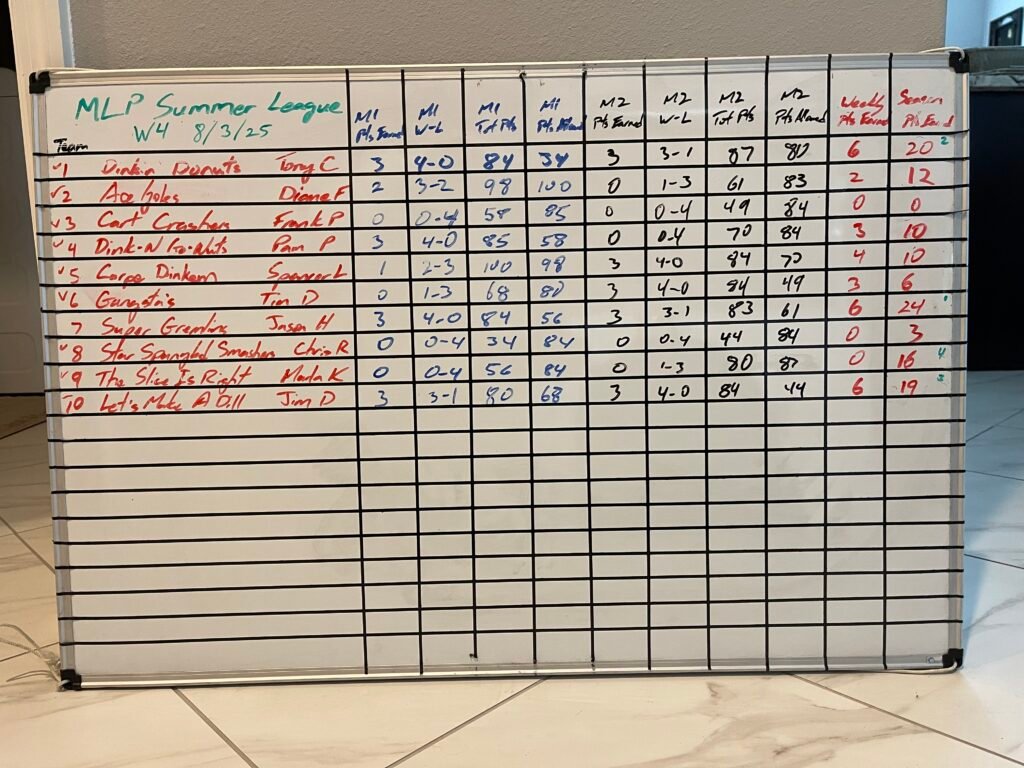 MLP Summer League
W4 8/3/25
Team M1 Pts Earned M1 W-L M1 Tot Pts M1 Pts Allowed M2 Pts Earned M2 W-L M2 Tot Pts M2 Pts Allowed Weekly Pts Earned Season Pts Earned
✓1 Dinkin Donuts Tony C 3 4-0 84 34 3 3-1 87 80 6 20 2
✓2 Ace Holes Diane F 2 3-2 98 100 0 1-3 61 83 2 12
✓3 Cart Crashers Frank P 0 0-4 58 85 0 0-4 49 84 0 0
✓4 Dink-N Go-Nuts Pam P 3 4-0 85 58 0 0-4 70 84 3 10
✓5 Carpe Dinkem Spencer L 1 2-3 100 98 3 4-0 84 70 4 10
✓6 Gangsta's Tim D 0 1-3 68 80 3 4-0 84 49 3 6
7 Super Gremlins Jason H 3 4-0 84 56 3 3-1 83 61 6 24
✓8 Star Spangled Smashers Chris R 0 0-4 34 84 0 0-4 44 84 0 3
✓9 The Slice Is Right Marla K 0 0-4 56 84 0 1-3 80 87 0 16 4
10 Let's Make A Dill Jim D 3 3-1 80 68 3 4-0 84 44 6 19 3